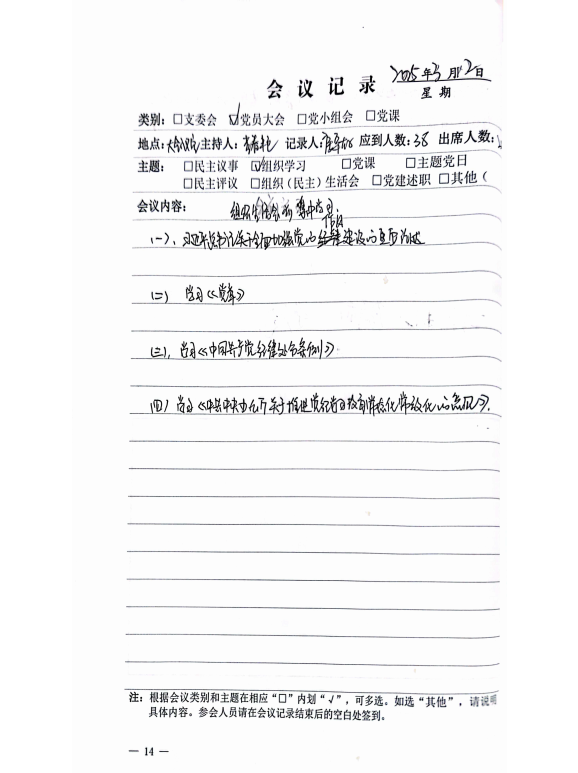 会议记录 2025年3月12日
星期
类别：□支委会 ☑党员大会 □党小组会 □党课
地点：大会议室 主持人： 记录人： 应到人数：38 出席人数：
主题：□民主议事 ☑组织学习 □党课 □主题党日
□民主评议 □组织（民主）生活会 □党建述职 □其他（
会议内容： 组织生活会前集中学习.
(一)、习近平总书记关于全面加强党的纪律建设的重要论述
(二) 学习《党章》
(三)、学习《中国共产党纪律处分条例》
(四) 学习《中共中央办公厅关于推进党纪学习教育常态化长效化的意见》.
注：根据会议类别和主题在相应“□”内划“√”，可多选。如选“其他”，请说明
具体内容。参会人员请在会议记录结束后的空白处签到。
— 14 —